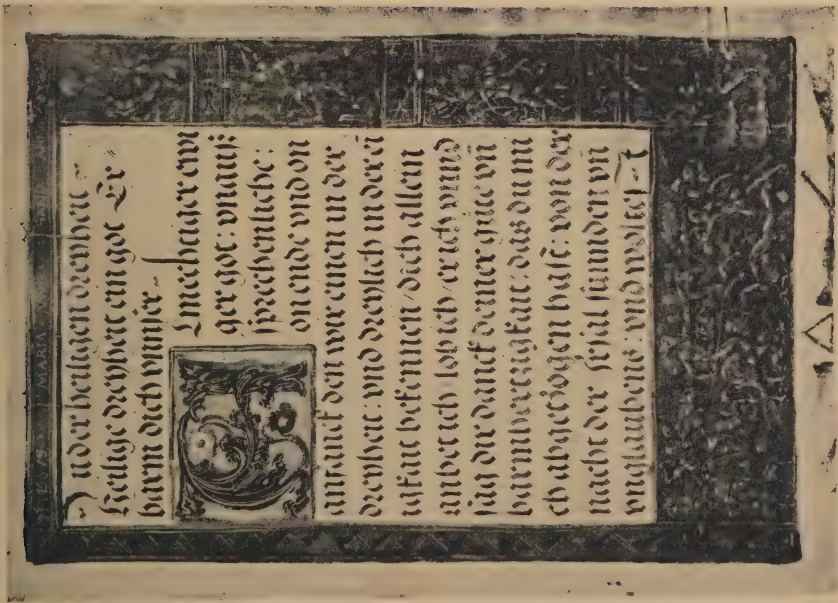 Zu der heiligen dreyheit
Heilige dreyheit ein got Er=
barm dich vnnser
lmechtiger ewi
ger got: vnauß
sprechenliche:
on ende vnd on
anfanck den wir einen in der
dreyheit: vnd dreylich in der ai
nikait bekennen / dich allein
anbet ich lob ich / er ich vnnd
sag dir danck deiner güte vn̄
barmhertzigkait: das du mi
ch abgezogen hast: von der
nacht der sünnden vn
vnglaubens: vnd woltest
MARIA